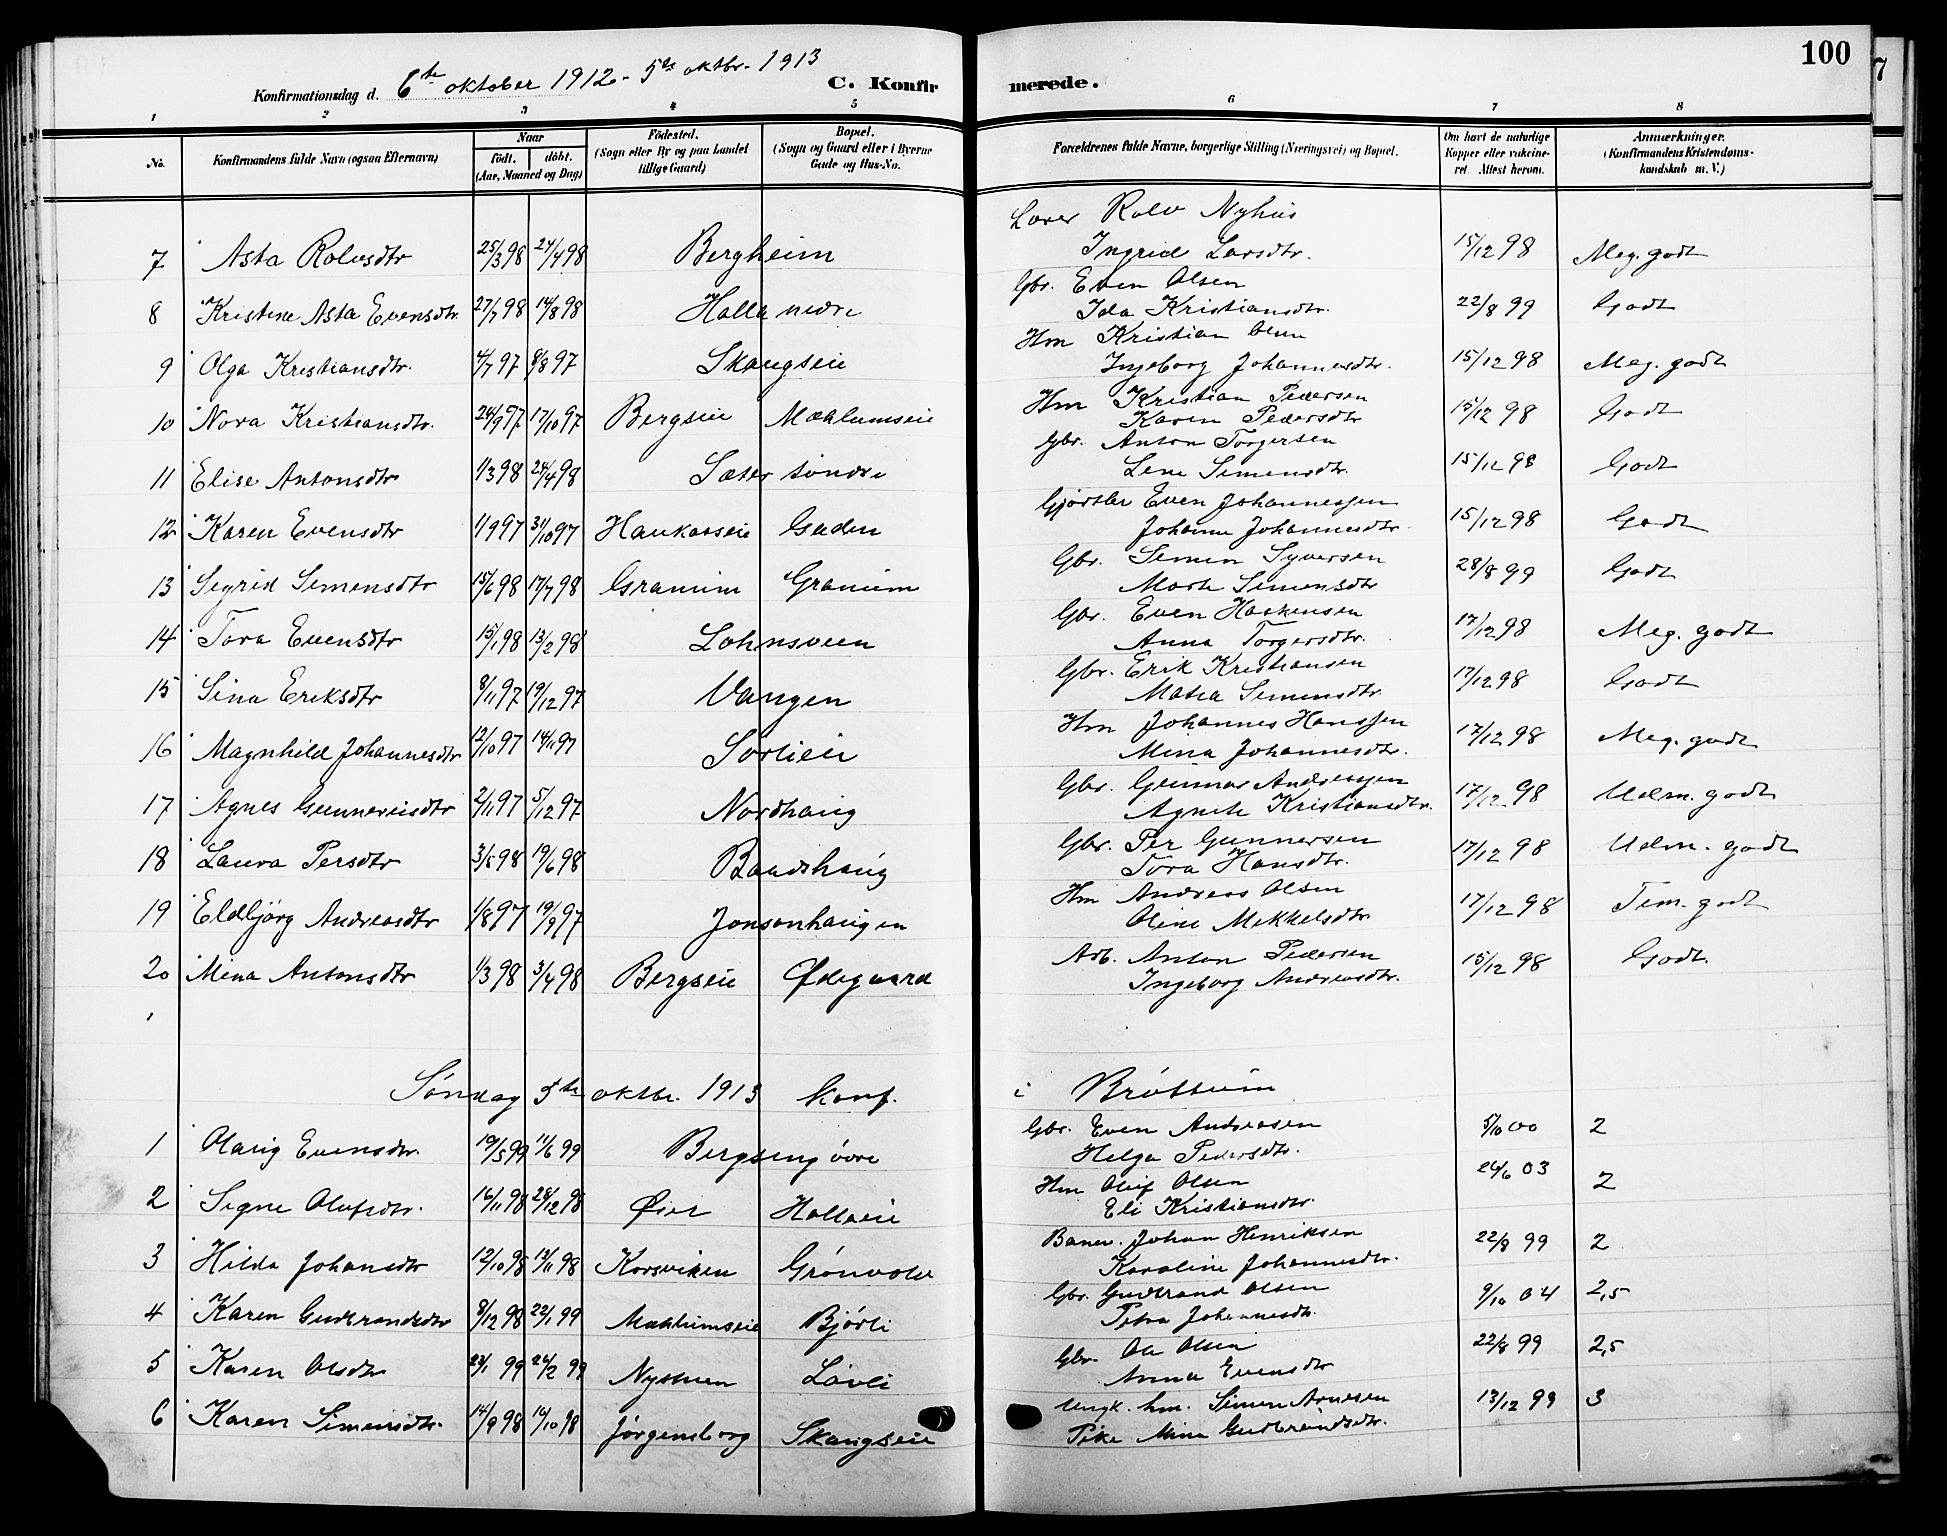 100
7
Konfirmationsdag d. 6te oktober 1912 - 5te oktbr. 1913 C. Konfirmerede.
1 2 3 4 5 6 7 8
No. Konfirmandens fulde Navn (ogsaa Efternavn) Naar født. døbt. (Aar, Maaned og Dag) Fødested. (Sogn eller By og paa Landet tillige Gaard) Bopæl. (Sogn og Gaard eller i Byerne Gade og Hus-No. Forældrenes fulde Navne, borgerlige Stilling (Næringsvei) og Bopæl. Om havt de naturlige Kopper eller vakcineret. Attest herom. Anmærkninger. (Konfirmandens Kristendomskundskab m. V.)
Lærer Rolv Nyhus
7 Asta Rolvsdtr 25/3 98 24/4 98 Bergheim Ingrid Larsdtr. 15/12 98 Meg. godt
Gbr. Even Olsen
8 Kristine Asta Evensdtr. 27/7 98 14/8 98 Holla nedre Ida Kristiansdtr. 22/8 99 Godt
Hm Kristian
9 Olga Kristiansdtr. 4/7 97 8/8 97 Skaugseie Ingeborg Johannesdtr. 15/12 98 Meg. godt
Hm Kristian Pedersen
10 Nora Kristiansdtr. 24/9 97 17/10 97 Bergseie Mæhlumseie Karen Pedersdtr 15/12 98 Godt
Gbr. Anton Torgersen
11 Elise Antonsdtr 1/3 98 24/4 98 Sæter søndre Lene Simensdtr. 15/12 98 Godt
Gjørtler Even Johannessen
12 Karen Evensdtr 1/9 97 31/10 97 Haukaaseie Gaden Johanne Johannesdtr. 15/12 98 Godt
Gbr. Simen Syversen
13 Sigrid Simensdtr 15/6 98 17/7 98 Granum Granum Marte Simensdtr 28/8 99 Godt
Gbr. Even Haakensen
14 Tora Evensdtr 15/1 98 13/2 98 Lohnsveen Anna Torgersdtr. 17/12 98 Meg. godt
Gbr. Erik Kristiansen
15 Sina Eriksdtr 8/11 97 19/12 97 Vangen Matea Simensdtr. 17/12 98 Godt
Hm Johannes Hanssen
16 Magnhild Johannesdtr 12/10 97 14/11 97 Sørlieie Mina Johannesdtr. 17/12 98 Meg. godt
Gbr. Gunnar Andreassen
17 Agnes Gunneriusdtr 2/11 97 5/12 97 Nordhaug Agnete Kristiansdtr. 17/12 98 Udm. godt
Gbr. Per Gunnersen
18 Laura Persdtr 3/5 98 19/6 98 Baadshaug Tora Hansdtr. 17/12 98 Udm. godt
Hm Andreas Olsen
19 Eldbjørg Andreasdtr 1/8 97 19/9 97 Jonsonhaugen Oline Mikkelsdtr. 17/12 98 Tem. godt
Arb. Anton Pedersen
20 Mina Antonsdtr 1/3 98 3/4 98 Bergseie Ødegaard Ingeborg Andreasdtr. 15/12 98 Godt.
Søndag 5te oktbr. 1913 konf. i Brøttum
Gbr. Even Andreasen
1 Olaug Evensdtr. 19/5 99 11/6 99 Bergseng øvre Helga Pedersdtr. 5/10 00 2
Hm Oluf Olsen
2 Signe Olufsdtr. 16/11 98 28/12 98 Øier Hollaeie Eli Kristiansdtr. 24/6 03 2
Baner. Johan Henriksen
3 Hilda Johansdtr 12/10 98 13/11 98 Korsviken Grønvold Karoline Johannesdtr. 22/8 99 2
Gbr. Gudbrand Olsen
4 Karen Gudbrandsdtr 8/12 98 22/1 99 Mæhlumseie Bjørli Petra Johannesdtr. 9/10 04 2,5
Gbr. Ole Olsen
5 Karen Olsdtr 23/1 99 26/2 99 Nystuen Løvli Anna Evensdtr 22/8 99 2,5
Ungk. hm. Simen Arnesen
6 Karen Simensdtr. 14/9 98 16/10 98 Jørgensborg Skaugseie Pike Mina Gudbrandsdtr. 13/12 99 3